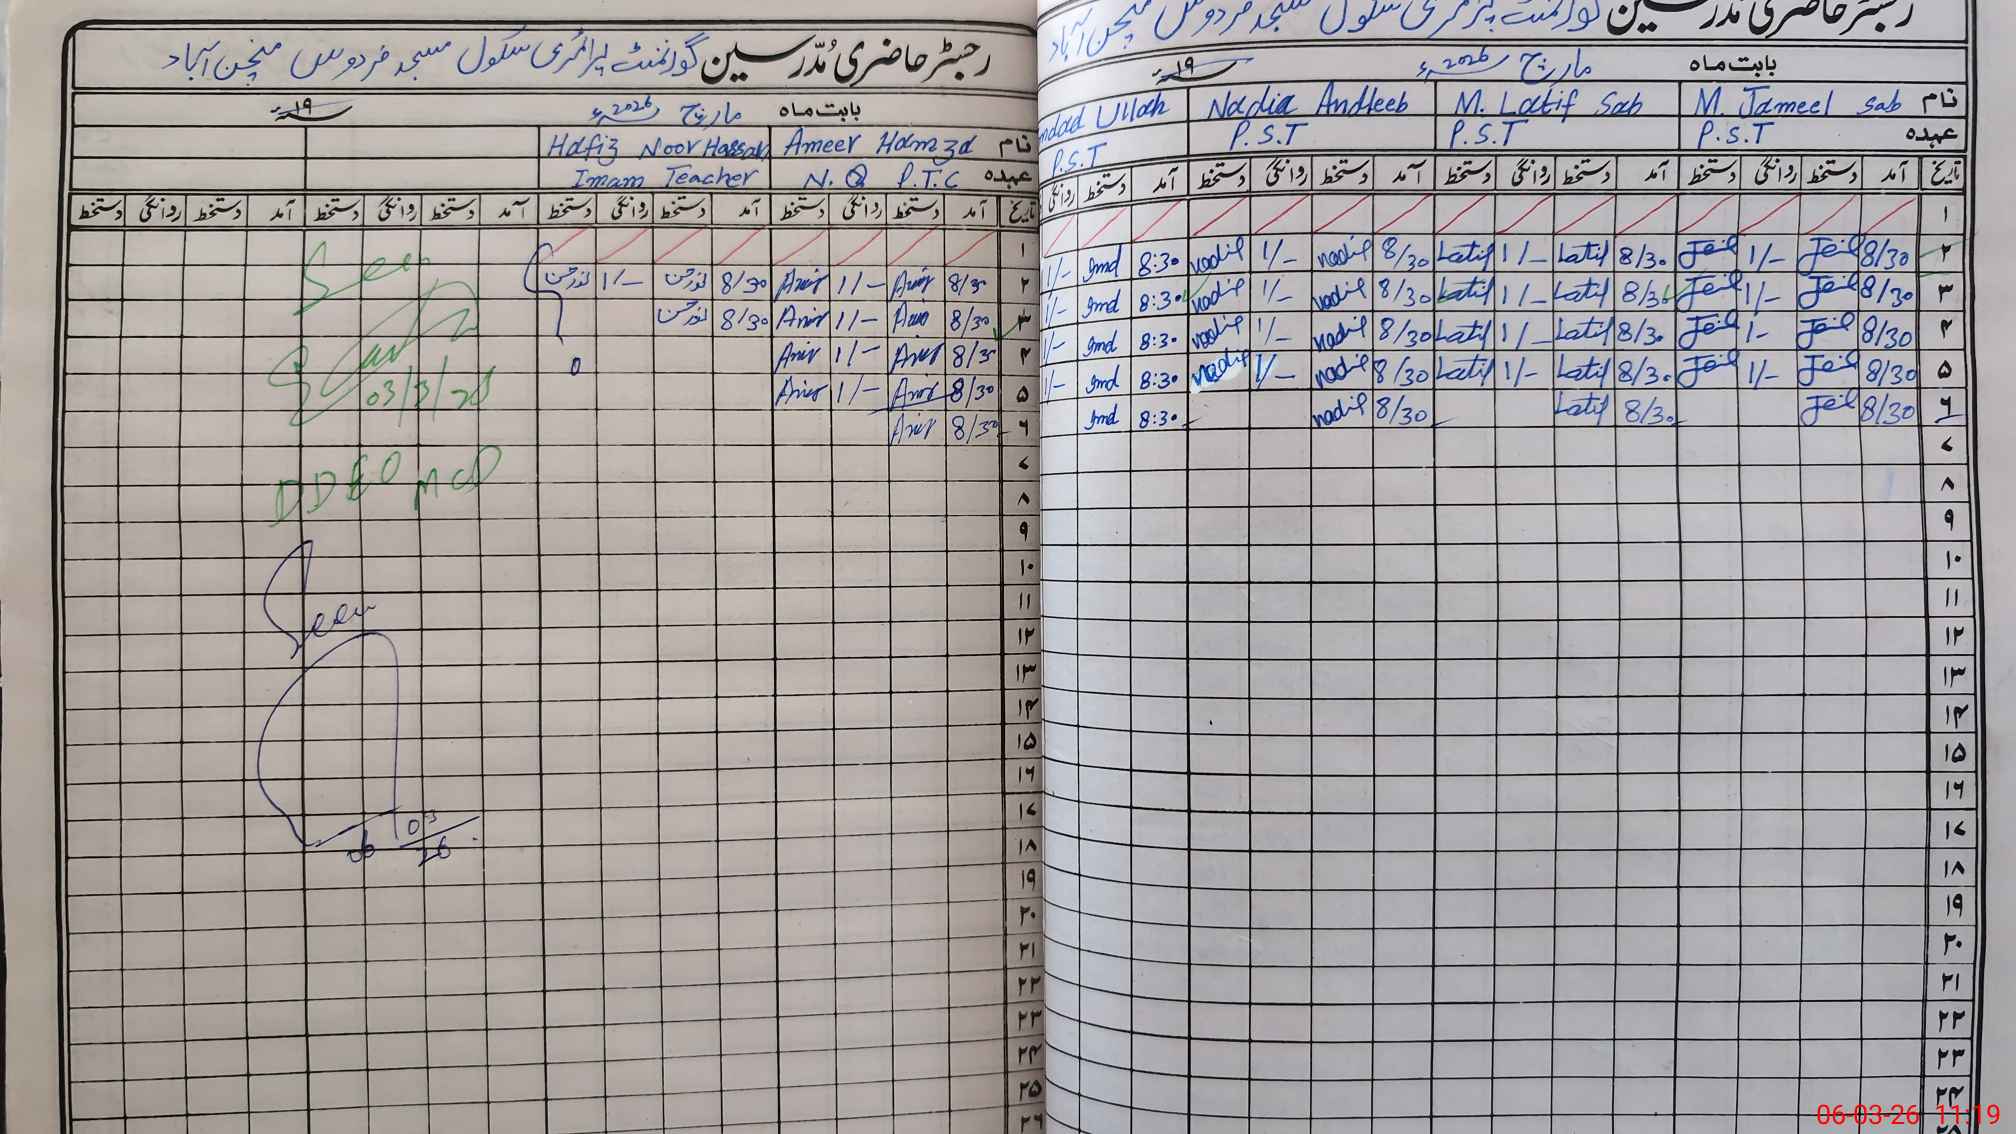 رجسٹر حاضری مُدّرسین گورنمنٹ پرائمری سکول مسجد فردوس منچن آباد
بابت ماہ مارچ 2026ء ۱۹ء
نام M. Jameel Sab M. Latif Sab Nadia Andleeb Ullah
عہدہ P.S.T P.S.T P.S.T P.S.T
تاریخ آمد دستخط روانگی دستخط آمد دستخط روانگی دستخط آمد دستخط روانگی دستخط آمد دستخط روانگی
۱
۲ 8/30 Jeil 1/- Jeil 8/30 Latif 1/- Latif 8/30 nadil 1/- nadil 8:30 Imd 1/-
۳ 8/30 Jeil 1/- Jeil 8/30 Latif 1/- Latif 8/30 nadil 1/- nadil 8:30 Imd 1/-
۴ 8/30 Jeil 1/- Jeil 8/30 Latif 1/- Latif 8/30 nadil 1/- nadil 8:30 Imd 1/-
۵ 8/30 Jeil 1/- Jeil 8/30 Latif 1/- Latif 8/30 nadil 1/- nadil 8:30 Imd 1/-
۶ 8/30 Jeil 8/30 Latif 8/30 nadil 8:30 Imd
۷
۸
۹
۱۰
۱۱
۱۲
۱۳
۱۴
۱۵
۱۶
۱۷
۱۸
۱۹
۲۰
۲۱
۲۲
۲۳
۲۴
۲۵
رجسٹر حاضری مُدّرسین گورنمنٹ پرائمری سکول مسجد فردوس منچن آباد
بابت ماہ مارچ 2026ء ۱۹ء
نام Ameer Hamza Hafiz Noor Hassan
عہدہ N.Q P.T.C Imam Teacher
تاریخ آمد دستخط روانگی دستخط آمد دستخط روانگی دستخط آمد دستخط روانگی دستخط آمد دستخط روانگی دستخط
۱
۲ 8/30 Amir 1/- Amir 8/30 نورحسن 1/- نورحسن
۳ 8/30 Amir 1/- Amir 8/30 نورحسن
۴ 8/30 Amir 1/- Amir 0
۵ 8/30 Amir 1/- Amir
۶ 8/30 Amir
۷
۸
۹
۱۰
۱۱
۱۲
۱۳
۱۴
۱۵
۱۶
۱۷
۱۸
۱۹
۲۰
۲۱
۲۲
۲۳
۲۴
۲۵
۲۶
Seen
03/3/26
DDEO MCD
Seen
06 03
26
06-03-26 11:19